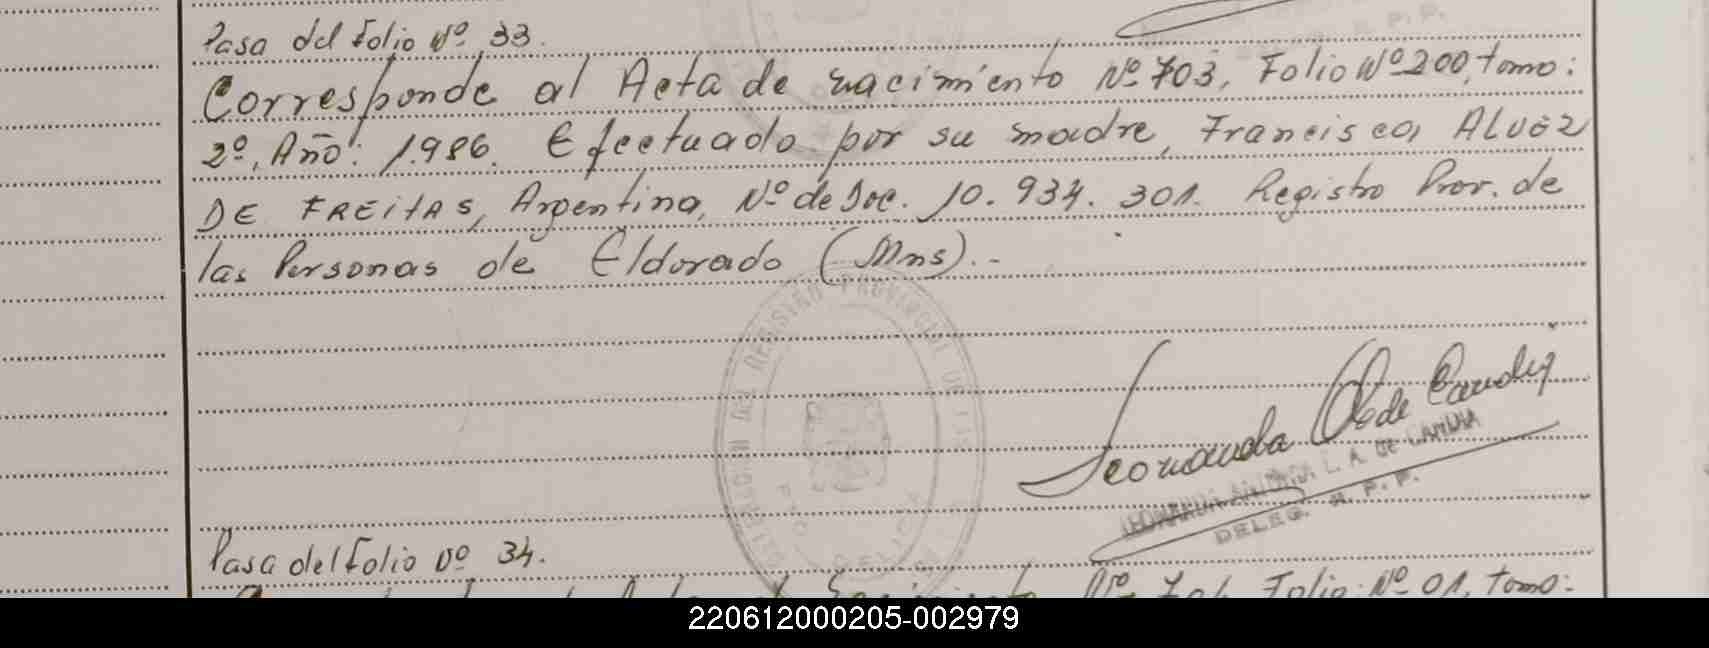 Pasa del folio Nº 33.
Corresponde al Acta de nacimiento Nº 703, Folio Nº 200, tomo:
2º, Año: 1.986. Efectuado por su madre, Francisca, ALVEZ
DE FREITAS, Argentina, Nº de Doc. 10.934.301. Registro Prov. de
las Personas de Eldorado (Mns).-
DEL REGISTRO PROVINCIAL DE
DELICIA
Leonarda de Candia
LEONARDA L. A. de CANDIA
DELEG. R. P. P.
Pasa del folio Nº 34.
Folio: Nº 01, tomo:
220612000205-002979